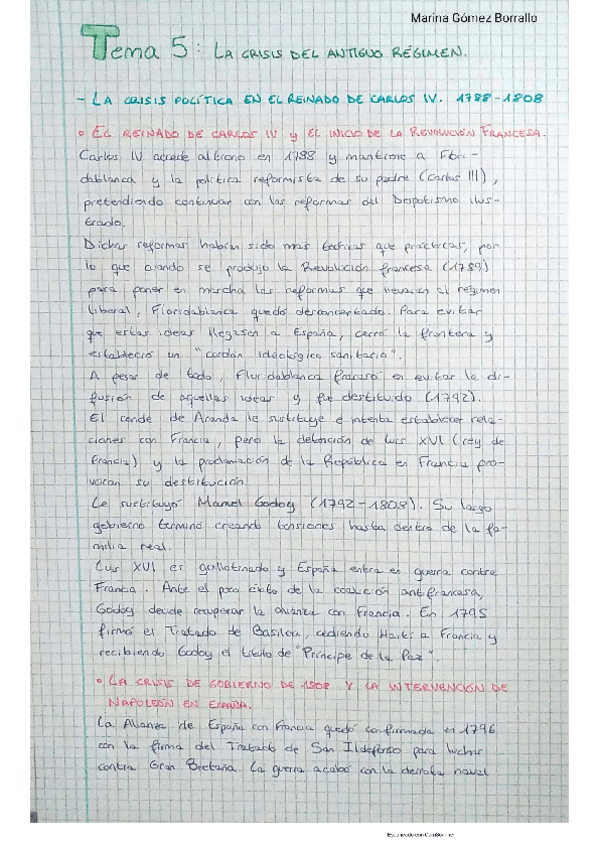 Marina Gómez Borrallo
Tema 5: LA CRISIS DEL ANTIGUO RÉGIMEN.
- LA CRISIS POLÍTICA EN EL REINADO DE CARLOS IV. 1788-1808
• EL REINADO DE CARLOS IV Y EL INICIO DE LA REVOLUCIÓN FRANCESA.
Carlos IV accede al trono en 1788 y mantiene a Flori-
dablanca y la política reformista de su padre (Carlos III),
pretendiendo continuar con las reformas del Despotismo Ilus-
trado.
Dichas reformas habían sido más teóricas que prácticas, por
lo que cuando se produjo la Revolución francesa (1789)
para poner en marcha las reformas que llevaron al régimen
liberal, Floridablanca quedó desconcertado. Para evitar
que estas ideas llegasen a España, cerró la frontera y
estableció un "cordón ideológico sanitario".
A pesar de todo, Floridablanca fracasó en evitar la di-
fusión de aquellas ideas y fue destituido (1792).
El conde de Aranda le sustituye e intenta establecer rela-
ciones con Francia, pero la detención de Luis XVI (rey de
Francia) y la proclamación de la República en Francia pro-
vocan su destitución.
Le sustituyó Manuel Godoy (1792-1808). Su largo
gobierno terminó creando tensiones hasta dentro de la fa-
milia real.
Luis XVI es guillotinado y España entra en guerra contra
Francia. Ante el poco éxito de la coalición antifrancesa,
Godoy decide recuperar la alianza con Francia. En 1795
firmó el Tratado de Basilea, cediendo Haití a Francia y
recibiendo Godoy el título de "Príncipe de la Paz".
• LA CRISIS DE GOBIERNO DE 1808 Y LA INTERVENCIÓN DE
NAPOLEÓN EN ESPAÑA.
La Alianza de España con Francia quedó confirmada en 1796
con la firma del Tratado de San Ildefonso para luchar
contra Gran Bretaña. La guerra acabó con la derrota naval
Escaneado con CamScanner